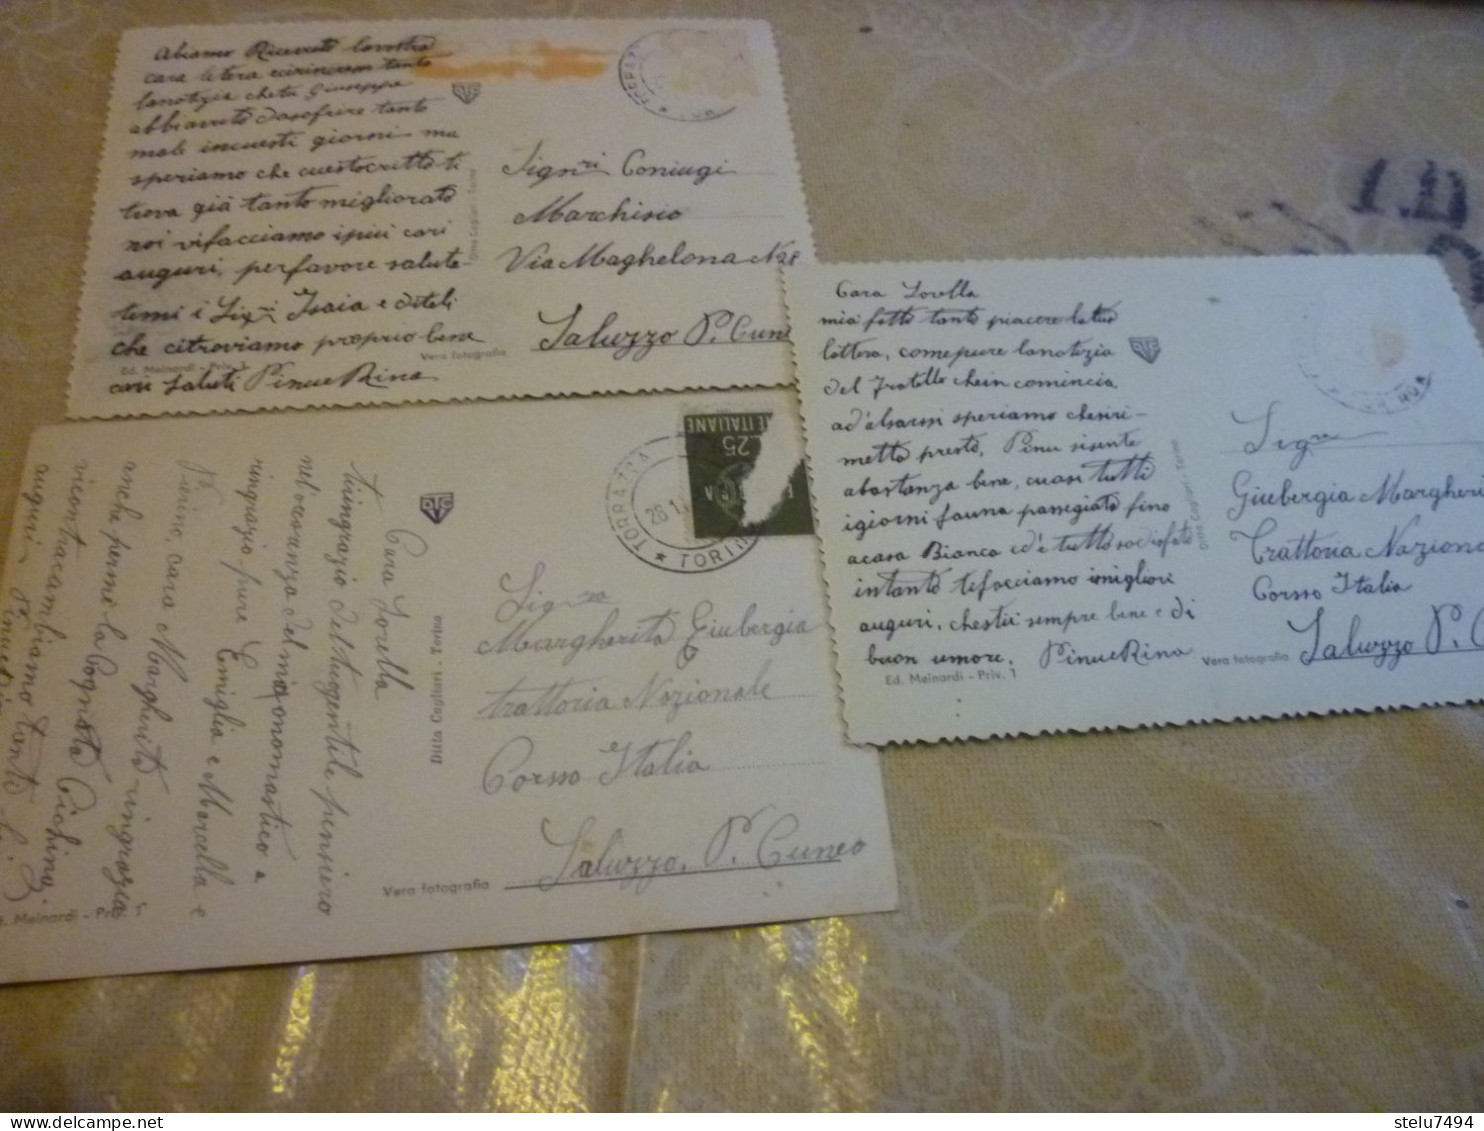 Abiamo Ricevuto lavostra
cara letera ecirincresm tanto
lanotizia cheta Giuseppe
abbiavuto dasofrire tanto
male incuesti giorni ma
speriamo che cuestocritto ti
trova già tanto migliorato
noi vifacciamo ipiu cari
auguri, perfavore salute-
temi i Sigri Isaia e diteli
che citroviamo proprio bene
cari saluti Pinu e Rina
Ed. Meinardi - Priv. 1
Vera fotografia
Ditta Cagliari - Torino
Signri Coniugi
Marchisio
Via Maghelona N28
Saluzzo P. Cune
Cara Sorella
mia fatto tanto piacere latua
lottera, comepure lanotizia
del Fratello chein comincia
ad'alsarsi speriamo chesiri-
metta presto, Pinu sisente
abastanza bene, cuasi tutti
igiorni fauna passegiata fino
acasa Bianco ed'è tutto sodisfato
intanto tefacciamo imigliori
auguri, chestii sempre bene e di
buon umore, Pinu e Rina
Ed. Meinardi - Priv. 1
Vera fotografia
Ditta Cagliari - Torino
Sigra
Giubergia Margheri
Trattoria Naziona
Corso Italia
Saluzzo P. C
Cara Sorella
tiringrazio deltuogentile pensiero
nel'ocoranza del mio onomastico e
ringrazio pure Emiglia e Marcella e
Pierino, cara Margherita ringrazia
anche perme la Cognata Cichina,
ricontracambiamo tanti
auguri
Ed. Meinardi - Priv. 1
Vera fotografia
Ditta Cagliari - Torino
E ITALIANE
25
TORRAZZA
28.1
TORIN
Sigra
Margherita Giubergia
trattoria Nazionale
Corso Italia
Saluzzo, P. Cuneo
stelu7494